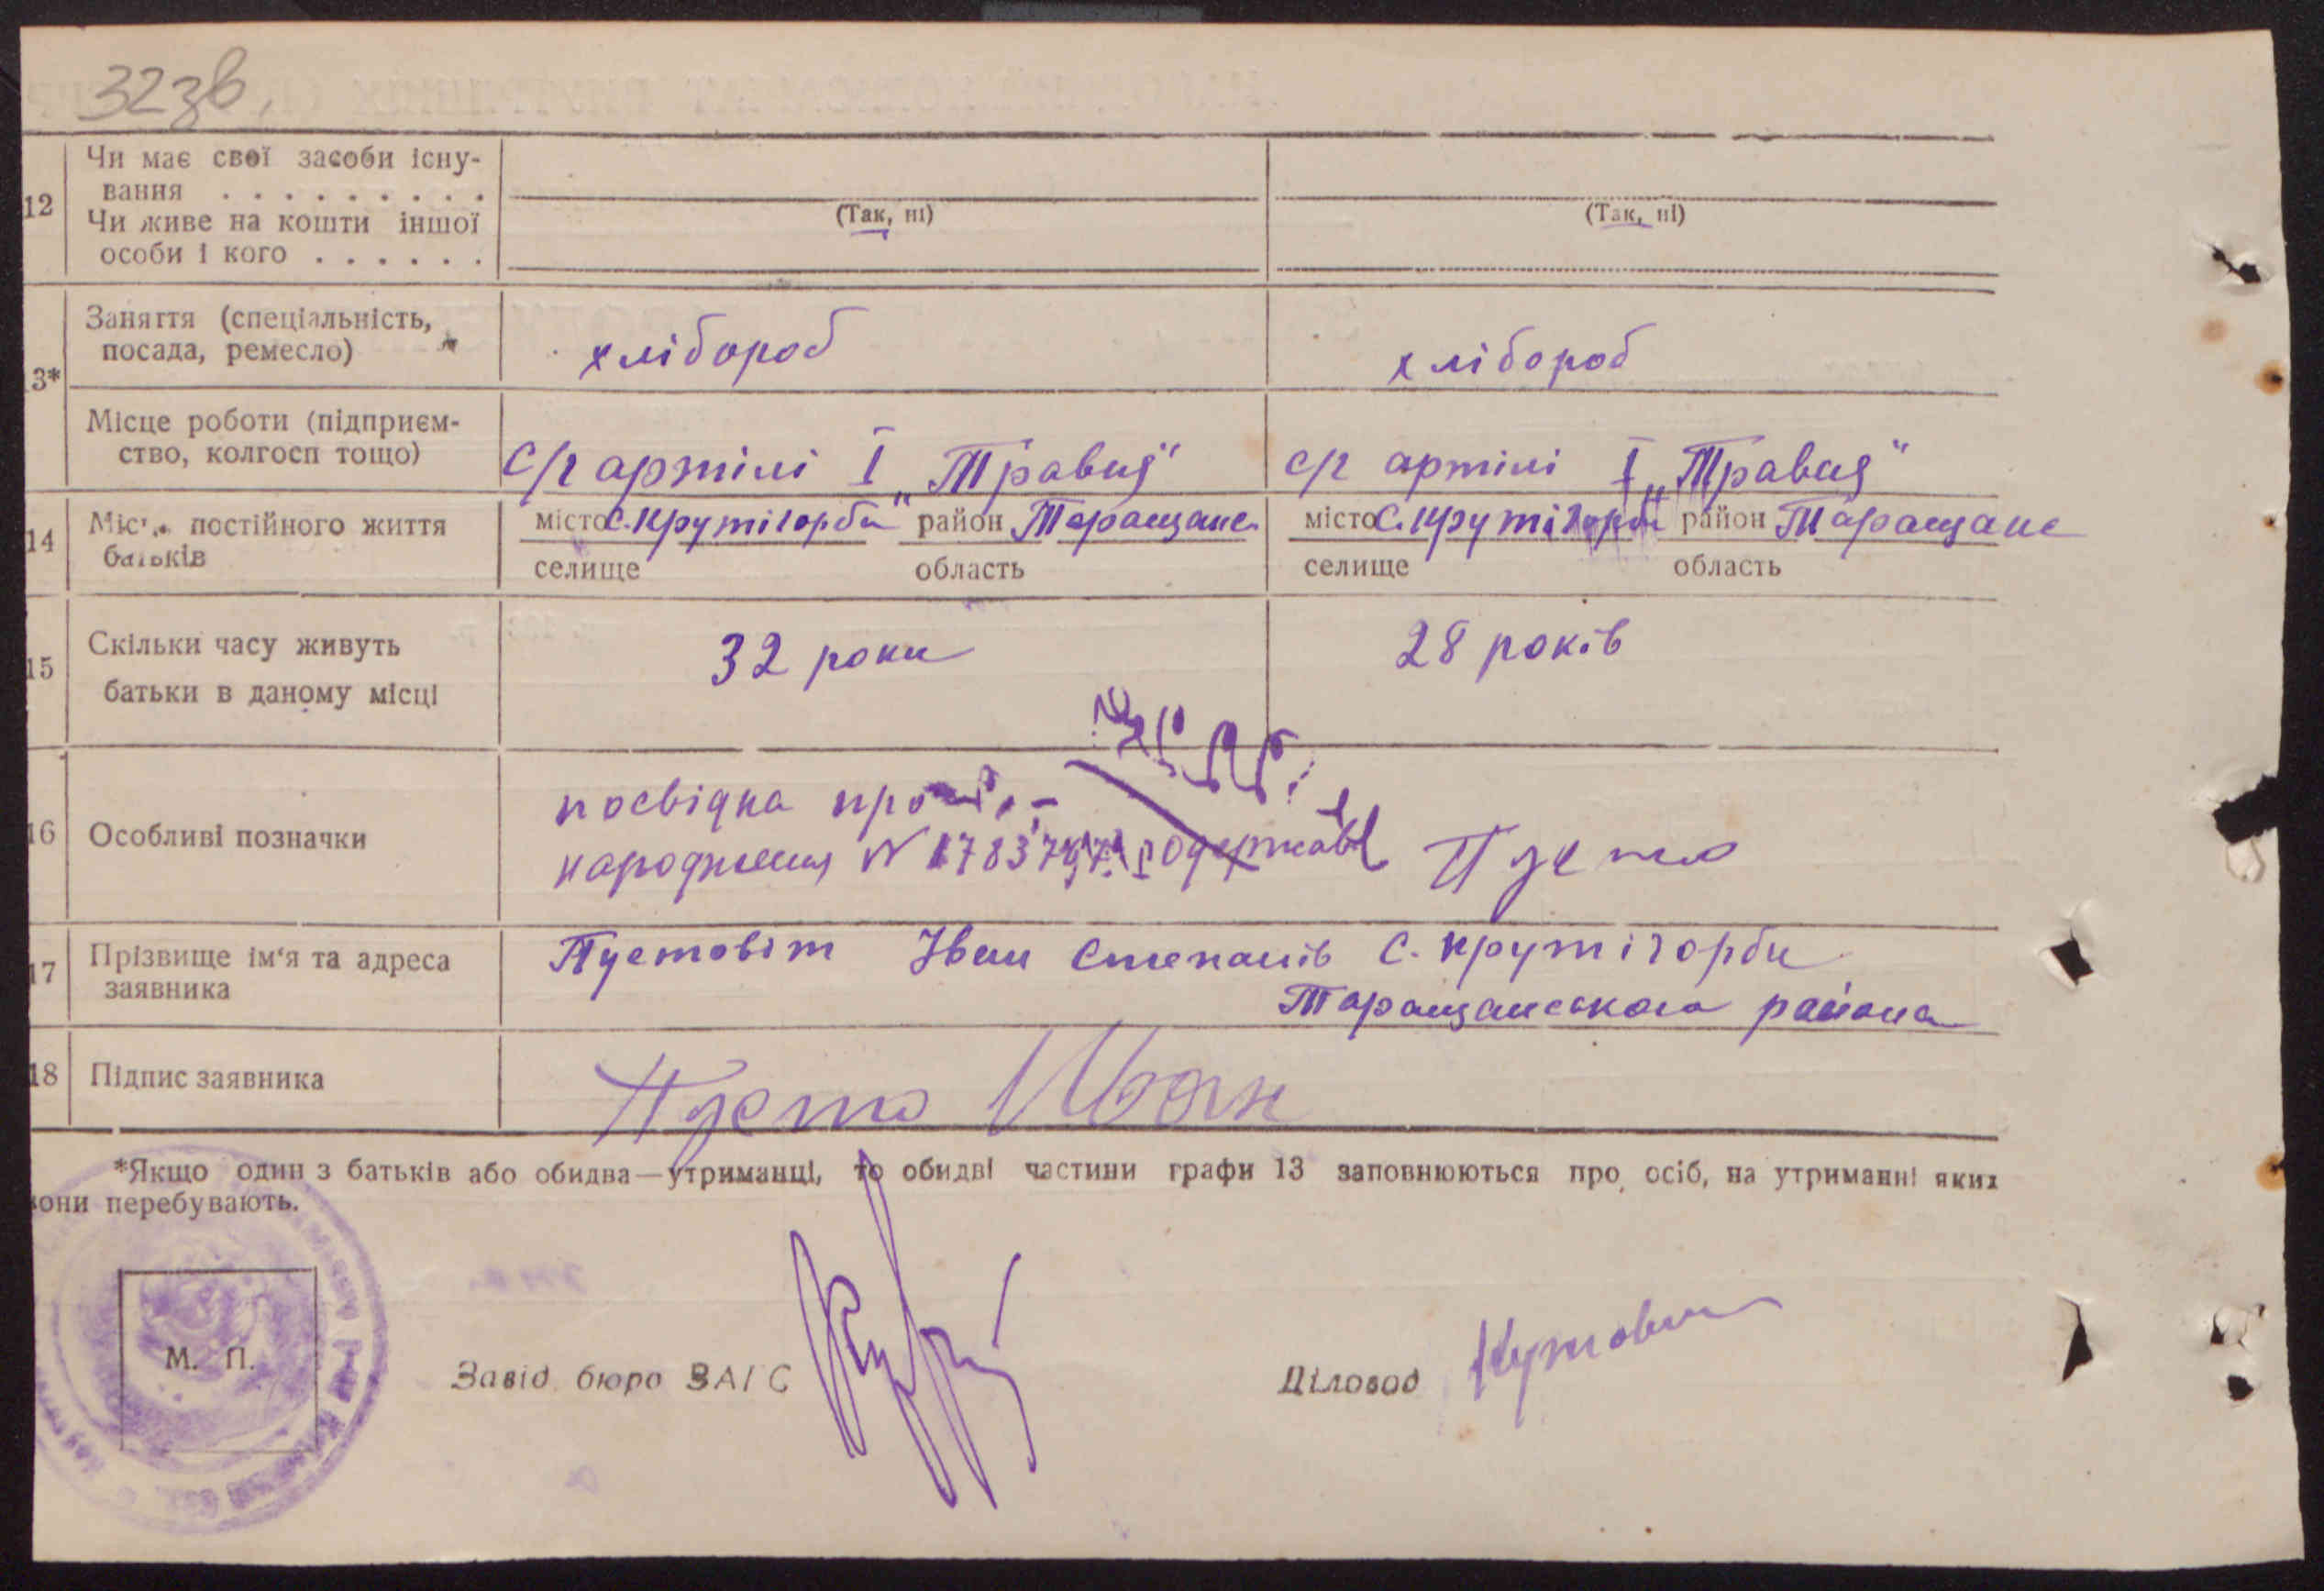 323в.
12 Чи має свої засоби існу-
вання . . . . . . . . .
(Так, ні) (Так, ні)
Чи живе на кошти іншої
особи і кого . . . . . .
13* Заняття (спеціальність,
посада, ремесло) хлібороб хлібороб
Місце роботи (підприєм-
ство, колгосп тощо) с/г артілі І „Травня" с/г артілі І „Травня"
14 Місце постійного життя місто с. Крутігорби район Таращанс. місто с. Крутігорби район Таращанс
батьків селище область селище область
15 Скільки часу живуть
батьки в даному місці 32 роки 28 років
16 Особливі позначки посвідка про
народження N одержав Пусто
17 Прізвище ім'я та адреса Пустовіт Іван Степанів с. Крутігорби
заявника Таращанського района
18 Підпис заявника Пусто Иван
*Якщо один з батьків або обидва—утриманці, то обидві частини графи 13 заповнюються про осіб, на утриманні яких
вони перебувають.
М. П.
Завід. бюро ЗАГС Діловод